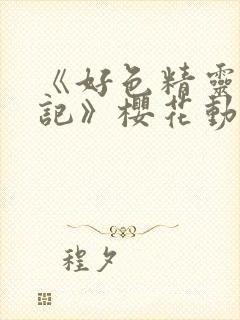 《好色精靈
記》櫻花動
程夕